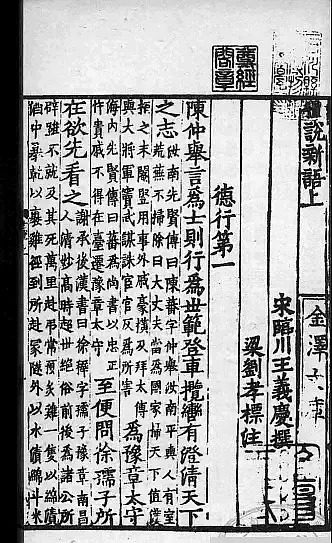 世說新語上
金澤文庫
宋臨川王義慶撰
梁劉孝標注
德行第一
陳仲舉言為士則行為世範登車攬轡有澄清天下
之志
汝南先賢傳曰陳蕃字仲舉汝南平輿人有室
荒蕪不掃除曰大丈夫當為國家掃天下值漢
桓之末閹豎用事外戚豪橫及拜太傅
與大將軍竇武謀誅宦官反為所害
為豫章太守
海內先賢傳曰蕃為尚書以忠正
忤貴戚不得在臺遷豫章太守
至便問徐孺子所
在欲先看之
謝承後漢書曰徐穉字孺子豫章南昌
人清妙高跱超世絕俗前後為諸公所
辟雖不就及其死萬里赴弔常預炙雞一隻以綿漬
酒中暴乾以裹雞徑到所赴冢隧外以水漬綿斗米